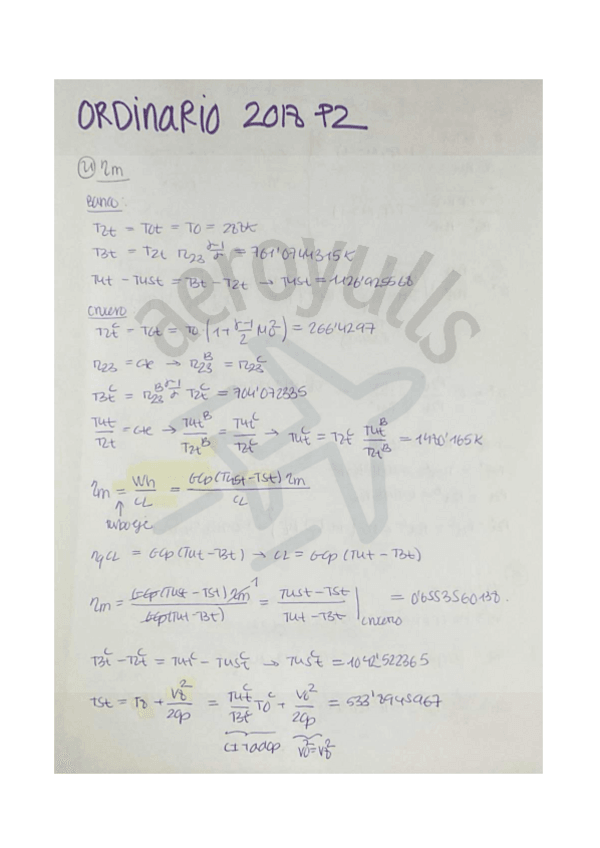 ORDINARIO 2018 P2
21) ηm
Banco:
T2t = T0t = T0 = 288K
T3t = T2t π23^(γ-1/γ) = 761'0744315K
T4t - T45t = T3t - T2t → T45t = 1126'925568
crucero
T2t^C = T0t = T0 (1 + γ-1/2 M0²) = 266'4297
π23 = cte → π23^B = π23^C
T3t^C = π23^B^(γ-1/γ) T2t^C = 704'072335
T4t/T2t = cte → T4t^B/T2t^B = T4t^C/T2t^C → T4t^C = T2t^C T4t^B/T2t^B = 1480'165K
ηm = Wn/CL = GCp(T45t-T5t)ηm/CL
↑
turboeje
ηqCL = GCp(T4t-T3t) → CL = GCp (T4t - T3t)
ηm = GCp(T45t - T5t)ηm^1/GCp(T4t-T3t) = T45t-T5t/T4t-T3t | crucero = 0'6553560138.
T3t^C - T2t^C = T4t^C - T45t^C → T45t^C = 1042'522365
T5t = T8 + V8²/2Cp = T4t^C/T3t^C T0^C + V0²/2Cp = 533'8945967
V0² = V8²
aeroyulls